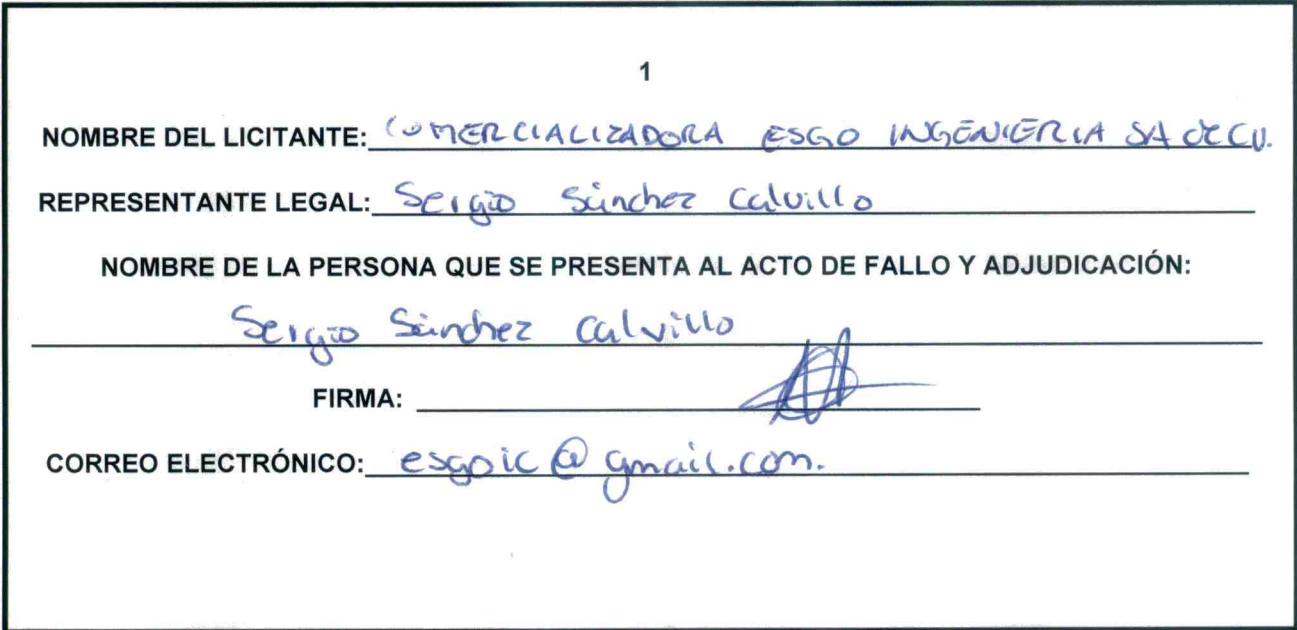 1
NOMBRE DEL LICITANTE: COMERCIALIZADORA ESGO INGENIERIA SA DE CV.
REPRESENTANTE LEGAL: Sergio Sánchez Calvillo
NOMBRE DE LA PERSONA QUE SE PRESENTA AL ACTO DE FALLO Y ADJUDICACIÓN:
Sergio Sánchez Calvillo
FIRMA:
CORREO ELECTRÓNICO: esgoic@gmail.com.